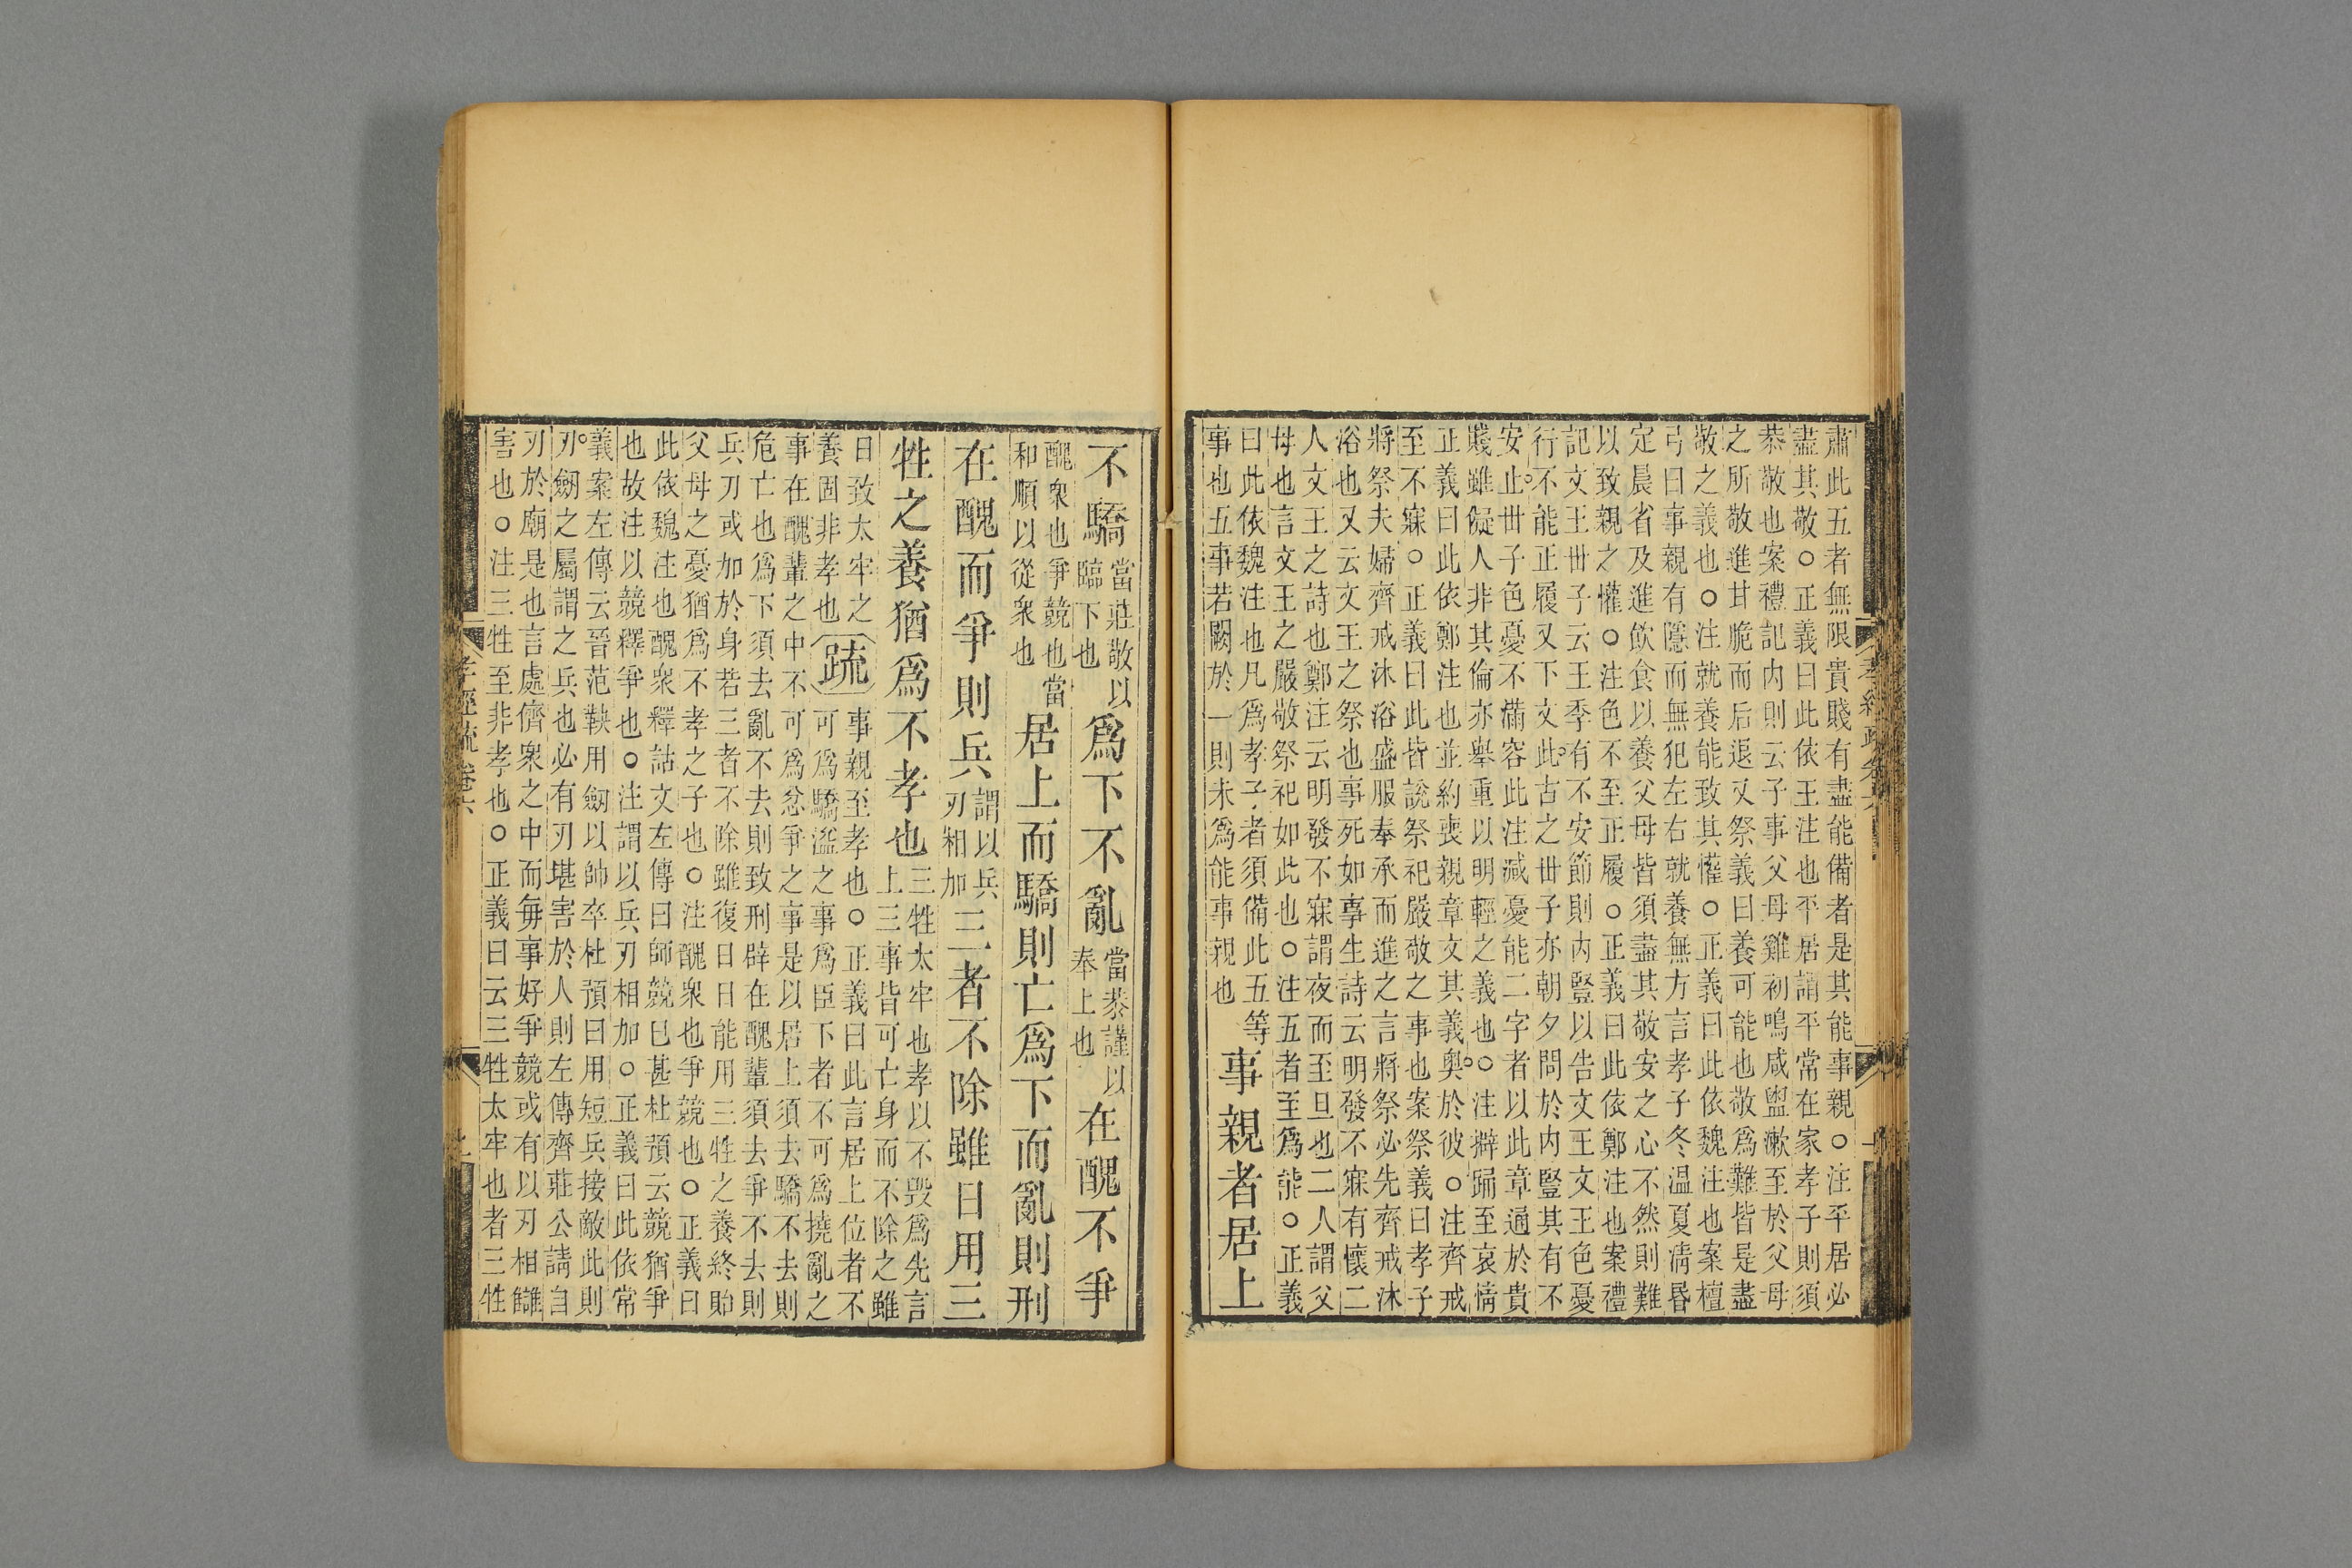 肅此五者無限貴賤有盡能備者是其能事親○注平居必
盡其敬○正義曰此依王注也平居謂平常在家孝子則須
恭敬也案禮記内則云子事父母雞初鳴咸盥漱至於父母
之所敬進甘脆而后退又祭義曰養可能也敬爲難皆是盡
敬之義也○注就養能致其懽○正義曰此依魏注也案檀
弓曰事親有隱而無犯左右就養無方言孝子冬温夏凊昬
定晨省及進飮食以養父母皆須盡其敬安之心不然則難
以致親之懽○注色不至正履○正義曰此依鄭注也案禮
記文王世子云王季有不安節則内豎以告文王文王色憂
行不能正履又下文此古之世子亦朝夕問於内豎其有不
安止世子色憂不滿容此注減憂能二字者以此章通於貴
賤雖儗人非其倫亦舉重以明輕之義也○注擗踊至哀情
正義曰此依鄭注也並約喪親章文其義奥於彼○注齊戒
至不寐○正義曰此皆說祭祀嚴敬之事也案祭義曰孝子
將祭夫婦齊戒沐浴盛服奉承而進之言將祭必先齊戒沐
浴也又云文王之祭也事死如事生詩云明發不寐有懷二
人文王之詩也鄭注云明發不寐謂夜而至旦也二人謂父
母也言文王之嚴敬祭祀如此也○注五者至爲能○正義
曰此依魏注也凡爲孝子者須備此五等
事也五事若闕於一則未爲能事親也
事親者居上
不驕當莊敬以臨下也爲下不亂當恭謹以奉上也在醜不爭
醜衆也爭競也當和順以從衆也居上而驕則亡爲下而亂則刑
在醜而爭則兵謂以兵刃相加三者不除雖日用三
牲之養猶爲不孝也三牲太牢也孝以不毀爲先言上三事皆可亡身而不除之雖
日致太牢之養固非孝也疏事親至孝也○正義曰此言居上位者不可爲驕溢之事爲臣下者不可爲撓亂之
事在醜輩之中不可爲忿爭之事是以居上須去驕不去則
危亡也爲下須去亂不去則致刑辟在醜輩須去爭不去則
兵刃或加於身若三者不除雖復日日能用三牲之養終貽
父母之憂猶爲不孝之子也○注醜衆也爭競也○正義曰
此依魏注也醜衆釋詁文左傳曰師競已甚杜預云競猶爭
也故注以競釋爭也○注謂以兵刃相加○正義曰此依常
義案左傳云晉范鞅用劒以帥卒杜預曰用短兵接敵此則
刃劒之屬謂之兵也必有刃堪害於人則左傳齊莊公請自
刃於廟是也言處儕衆之中而每事好爭競或有以刃相讎
害也○注三牲至非孝也○正義曰云三牲太牢也者三牲
孝經疏卷六